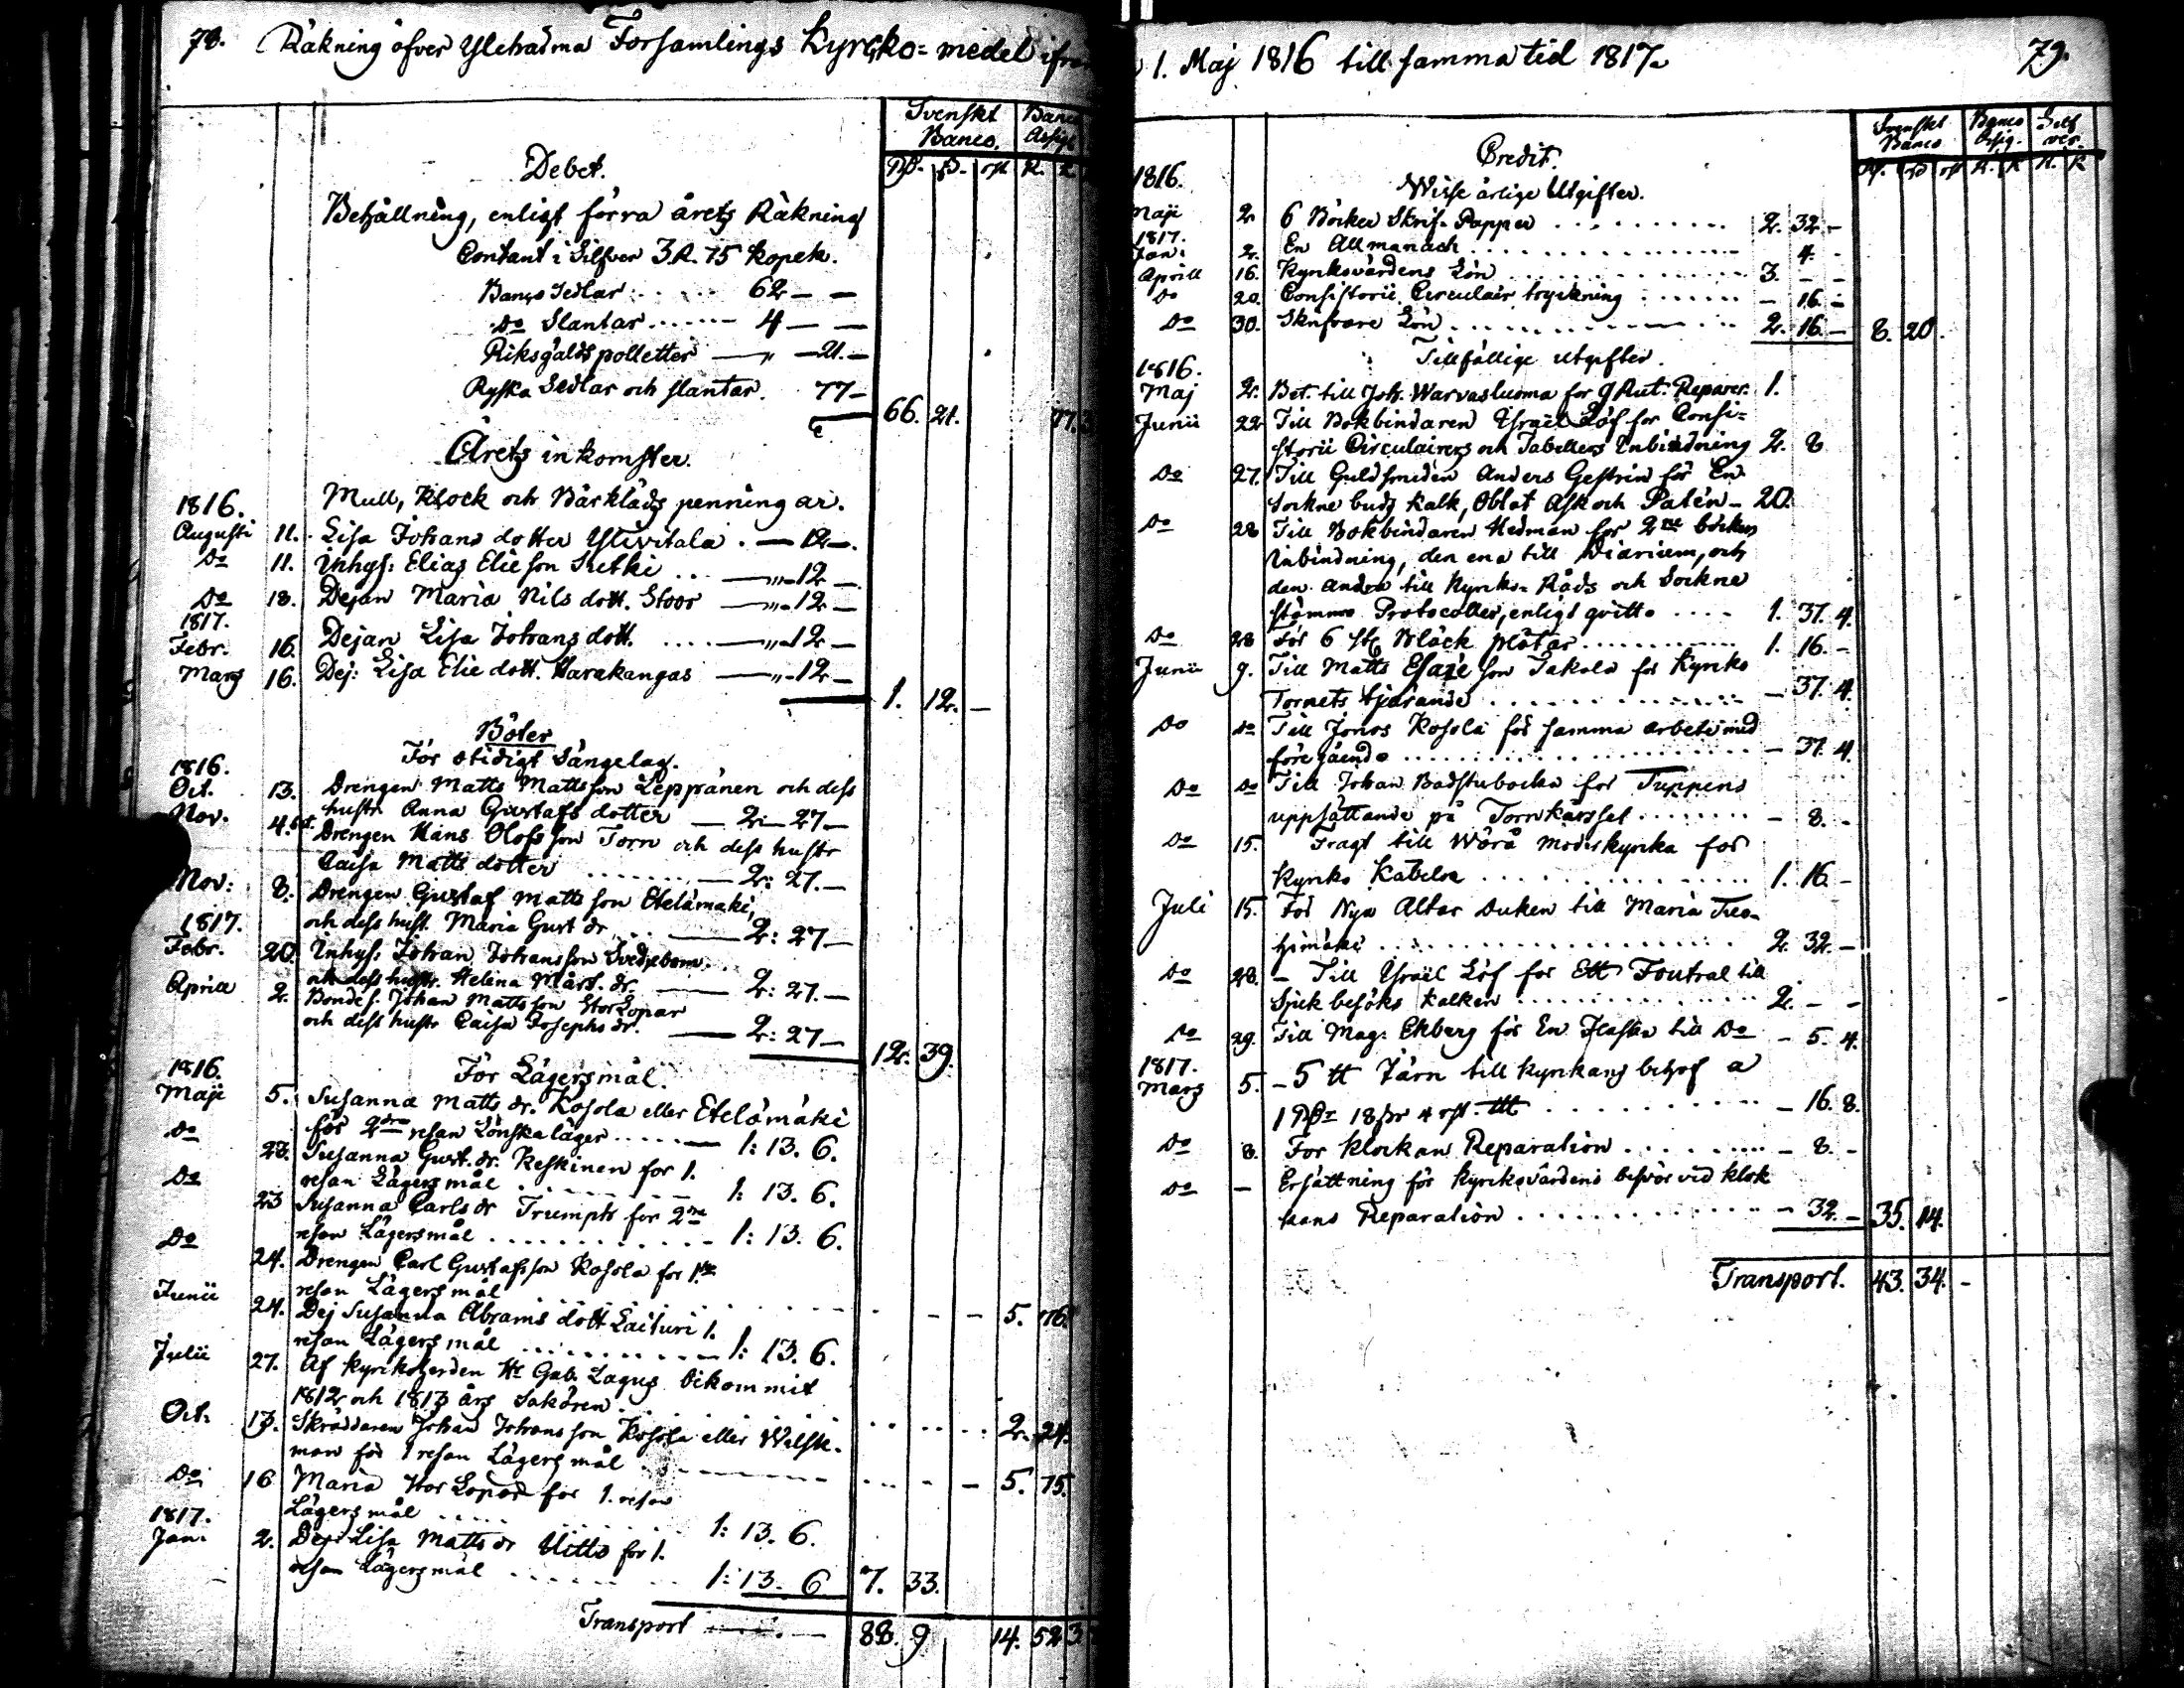 78. Räkning öfver Ylehärma Församlings Kyrcko-medel ifrån
Svenskt Banco. Banco Assign
Rd. ß. rst. R. K
Debet.
Behållning, enligt förra årets Räkning
Contant i Silfver 3 R. 75 Kopek.
Banco Sedlar . . . . 62 — —
Do Slantar . . . . . . 4 — —
Riksgälds polletter — " — 21. —
Ryska Sedlar och slantar. 77 —
66. 21. 77.
Årets inkomster.
Mull, Klock och Bårkläds penningar.
1816.
Augusti 11. Lisa Johans dotter Ylivitala . — 12 —.
Do 11. Inhys: Elias Elieson . . — " — 12 —
Do 18. Dejan Maria Nils dott. Stoor — " — 12 —
1817.
Febr. 16. Dejan Lisa Johans dott. . . . . — " — 12 —
Mars 16. Dej: Lisa Elie dott. Harakangas — " — 12 —
1. 12. —
Böter
För otidigt Sängelag.
1816.
Oct. 13. Drengen Matts Mattsson Leppänen och dess
hustr Anna Gustafs dotter — 2: 27 —
Nov. 4. Drengen Hans Olofsson Torn och dess hustr
Caisa Matts dotter . . . . . . . — 2: 27. —
Nov: 8. Drengen Gustaf Mattsson Etelämäki,
och dess hust. Maria Gust dr. . . — 2: 27 —
1817.
Febr. 20. Inhys: Johan Johansson
och dess hustr. Helena Mårt. dr. — 2: 27. —
Aprill 2. Bondes. Johan Mattsson Stor Lopar
och dess hustr Caisa Josephs dr. — 2: 27 —
12. 39.
För Lägersmål.
1816.
Maji 5. Susanna Matts dr. Kosola eller Etelämäki
för 2dra resan Lönskaläger . . . . . — 1: 13. 6.
Do 23. Susanna Gust. dr. Keskinen för 1.
resan Lägersmål . . . . . . . 1: 13. 6.
Do 23 Susanna Carls dr Trumph för 2ra
resan Lägersmål . . . . . . . . . . 1: 13. 6.
Do 24. Drengen Carl Gustafsson Kosola för 1sta
resan Lägersmål . . . . . . . . . . 5. 76.
Junii 24. Dej Susanna Abrams dott Laituri 1.
resan Lägersmål . . . . . . . . . — 1: 13. 6.
Julii 27. Af Kyrkoherden Hr Gab. Lagus bekommit
1812 och 1813 års Sakören . . . . . . 2. 24.
Oct: 13. Skräddaren Johan Johansson Kosola eller Wilsk-
man för 1 resan Lägersmål . . . . . . 5. 75.
Do 16 Maria Stor Lopar för 1. resan
Lägersmål . . . . . . . . . . 1: 13. 6.
1817.
Jan: 2. Dej: Lisa Matts dr Uitto för 1.
resan Lägersmål . . . . . . . . 1: 13. 6 7. 33.
Transport . . . . — 88. 9 14. 52 3
1. Maj 1816 till samma tid 1817. 79.
Svenskt Banco Banco Assig. Silfver.
R. ß rst R. K R. K
Credit.
1816. Wisse årlige Utgifter.
Maji 2 6 Böcker Skrif-Papper . . . . . . . . . 2. 32. —
1817.
Jan: 2. En Allmanach . . . . . . . . . . . . 4. -
Aprill 16. Kyrkovärdens Lön . . . . . . . . . . 3. — —
Do 20. Consistorii Circulair tryckning . . . . . . — 16. —
Do 30. Skrifvare Lön . . . . . . . . . . . . 2. 16. — 8. 20.
1816. Tillfällige utgifter.
Maj 2. Bet. till Joh. Warvasluoma för 9 Rut. Reparer. 1.
Junii 22 Till Bokbindaren Israel Löf för Consi-
storii Circulairers och Tabellers Inbindning 2. 8
Do 27. Till Guldsmeden Anders Gestrin för En
Sockne buds Kalk, Oblat Ask och Patén — 20.
Do 28 Till Bokbindaren Hedman för 2ne böckers
Inbindning, den ena till Diarium, och
den andra till Kyrko-Råds och Sockne
stämmo Protocoller, enligt qvitto . . . . 1. 37. 4.
Do 28 För 6 st Bläck plåtar . . . . . . . . . . 1. 16. -
Junii 9. Till Matts Esaie son Jakola för Kyrko
Tornets tjärande . . . . . . . . . . . . . — 37. 4.
Do Do Till Jonas Kosola för samma arbete med
föregående . . . . . . . . . . . . . . . . — 37. 4.
Do Do Till Johan Badstubacka för Tuppens
uppsättande på Tornkorsset . . . . . . . . — 8. -
Do 15. Fragt till Wörå moderkyrka för
Kyrko Kabelen . . . . . . . . . . . . . . 1. 16. -
Juli 15. För Nya Altar Duken till Maria
. . . . . . . . . . . . . . . . . 2. 32. —
Do 28. — Till Israel Löf för Ett Foutral till
Sjuk besöks kalken . . . . . . . . . . . . . 2. - -
Do 29. Till Mag: Ekberg för En Flaska till Do — 5. 4.
1817.
Mars 5. — 5 ℔ Järn till Kyrkans behof a
1 Rdr 18 ßr 4 rst. ℔ . . . . . . . . . . — 16. 8.
Do 8. För Klockan Reparation . . . . . . . . . — 8. -
Do — Ersättning för Kyrkovärdens besvär vid Klok
kans Reparation . . . . . . . . . . . . . — 32. — 35. 14.
Transport. 43. 34. -